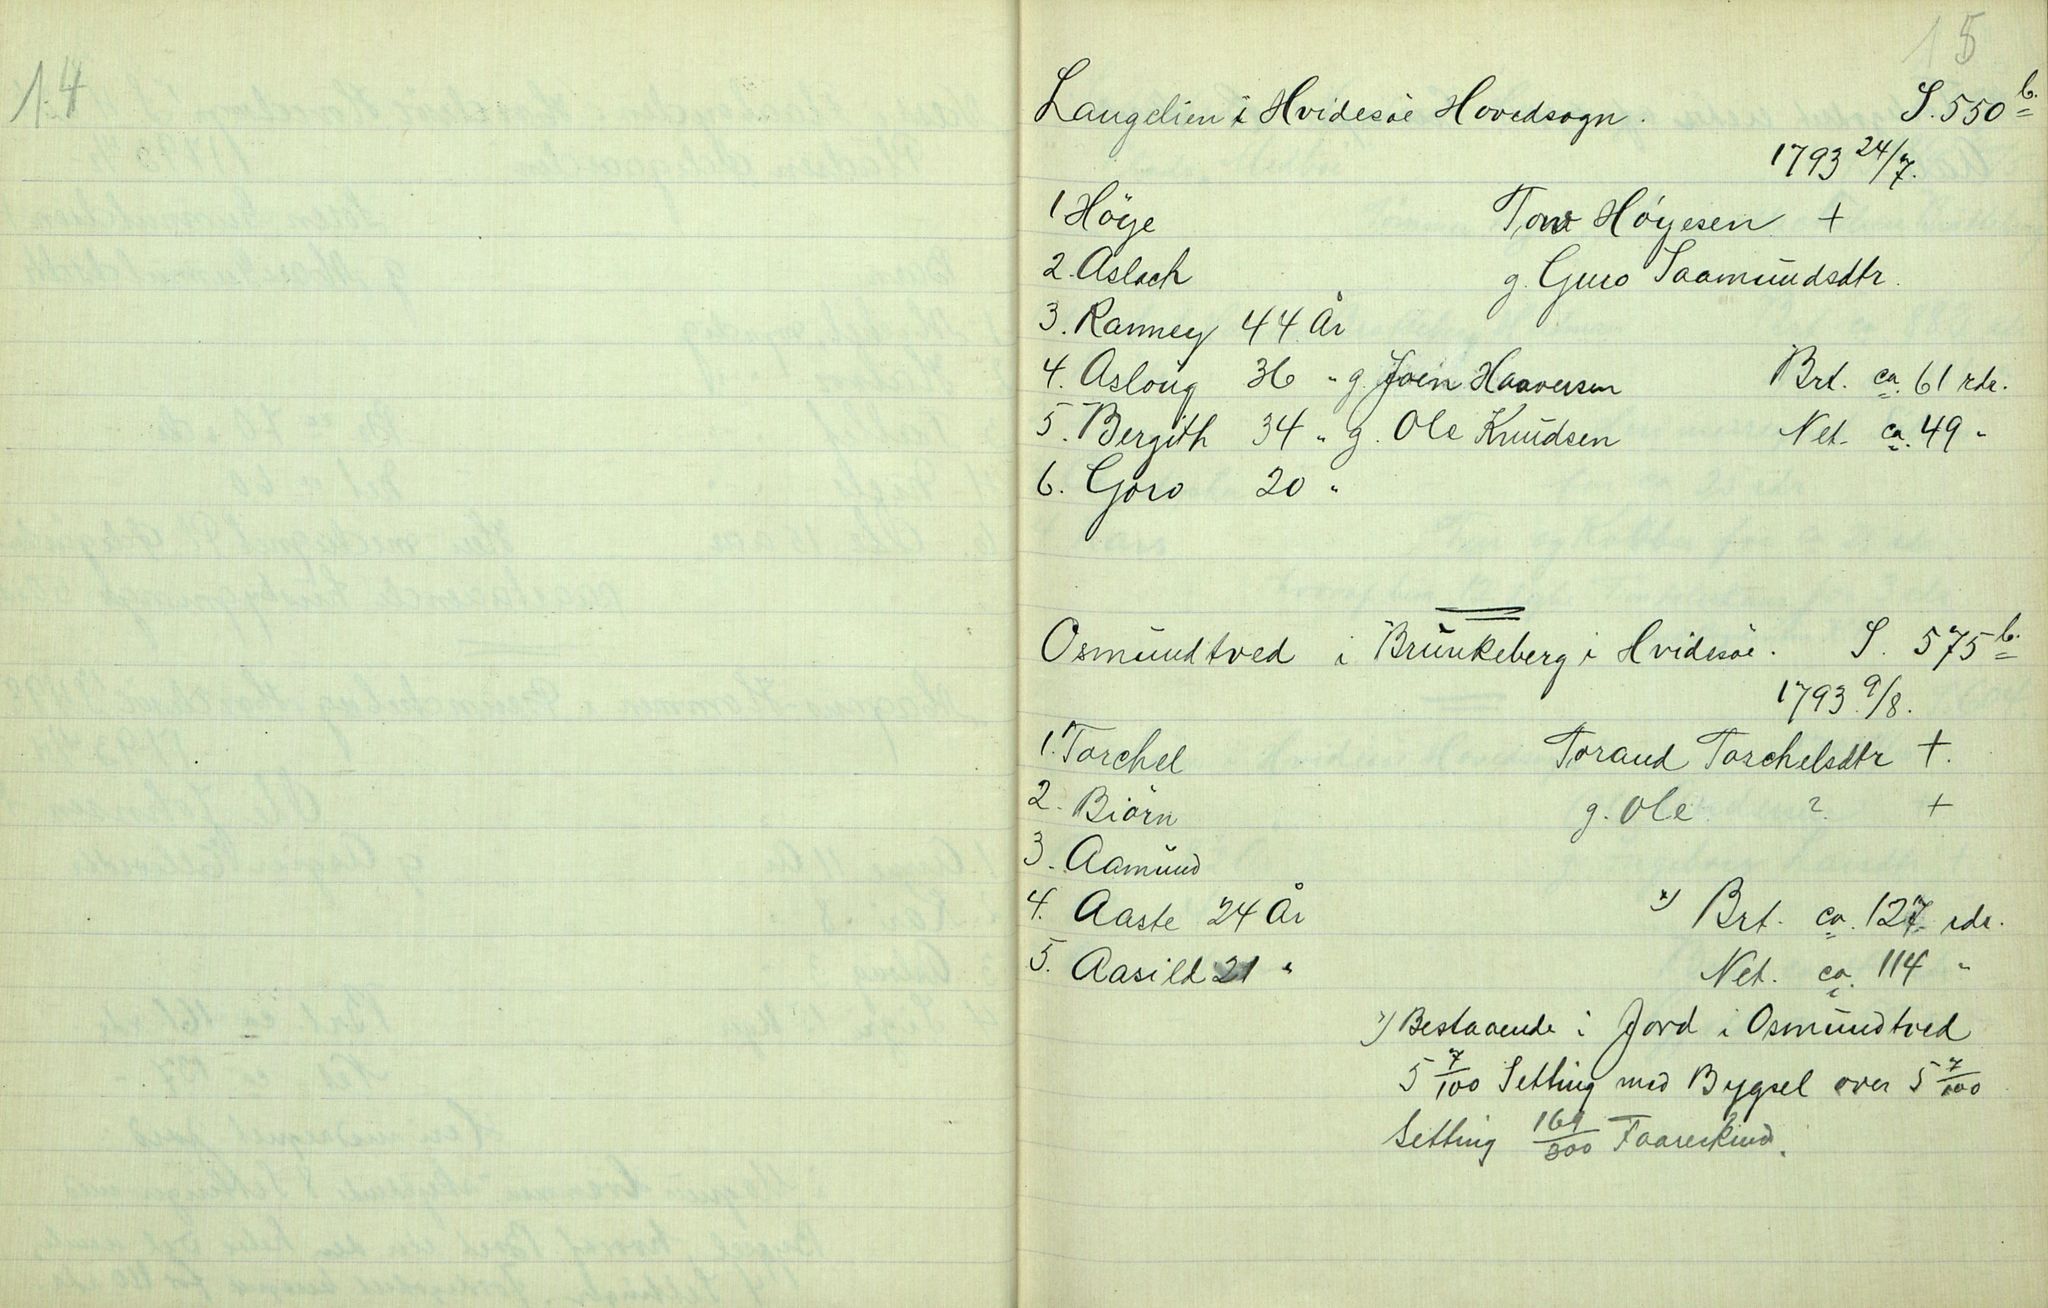 14
15
Langelien i Hvidesöe Hovedsogn. S. 550 b.
1793 24/7.
1 Höye Tore Höyesen +
2. Aslach g. Guro Saamundsdtr.
3. Ranney 44 År
4. Asloug 36 " g. Joen Haaversen Brt. ca. 61 rdr.
5. Bergith 34 " g. Ole Knudsen Net. ca. 49 "
6. Goro 20 "
Osmundtved i Brunkeberg i Hvidesöe. S. 575 b.
1793 9/8.
1. Torchel Torand Torchelsdtr +.
2. Biörn g. Ole ? +
3. Aamund
4. Aaste 24 År x) Brt. ca. 127 rdr.
5. Aasild 21 " Net. ca. 114 "
x) Bestaaende i Jord i Osmundtved
5 7/100 Setting med Bygsel over 5 7/100
Setting 169/300 Faareskind.